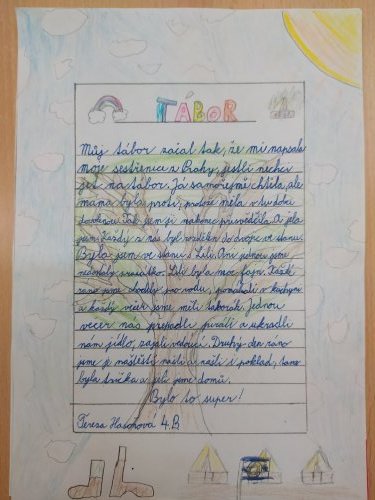 TÁBOR
Můj tábor začal tak, že mi napsala
moje sestřenice z Prahy, jestli nechci
jet na tábor. Já samozřejmě chtěla, ale
máma byla proti, protože měla v tu dobu
dovolenou. Tak jsem ji nakonec přesvědčila. A jela
jsem. Každý z nás byl rozdělen do dvojic ve stanu.
Byla jsem ve stanu s Lili. Ani jednou jsme
neměly. Lili byla moc fajn. Každé
ráno jsme chodily pro vodu, pomáhali v kuchyni
a každý večer jsme měli táborák. Jednou
večer nás přepadli piráti a ukradli
nám jídlo, zajali vedoucí. Druhý den ráno
jsme je naštěstí našli a našli i poklad, tam
byla svíčka a jeli jsme domů.
Bylo to super!
Tereza Hasoňová 4.B